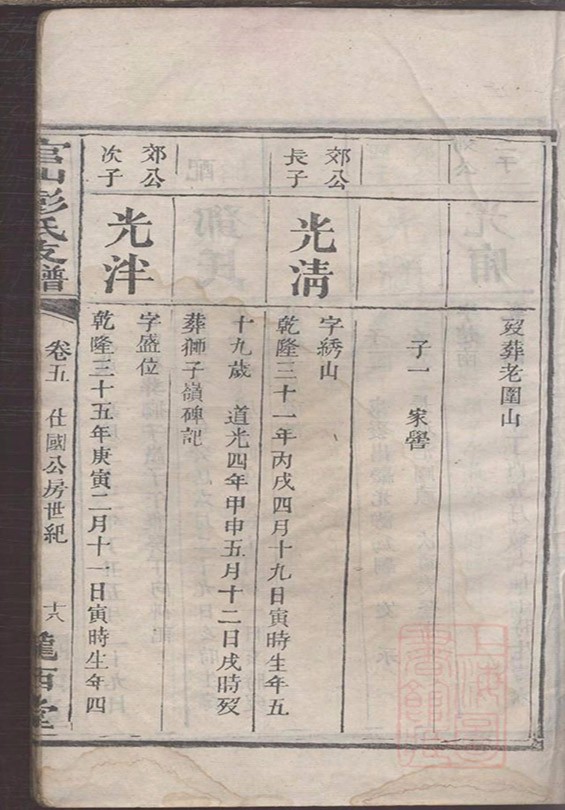 歿葬老圍山
子一 家譽
郊公
長子
光清
字綉山
乾隆三十一年丙戌四月十九日寅時生年五
十九歲 道光四年甲申五月十二日戌時歿
葬獅子嶺碑記
郊公
次子
光泮
字盛位
乾隆三十五年庚寅二月十一日寅時生年四
官山彭氏支譜
卷五 仕國公房世紀
十八
隴西堂